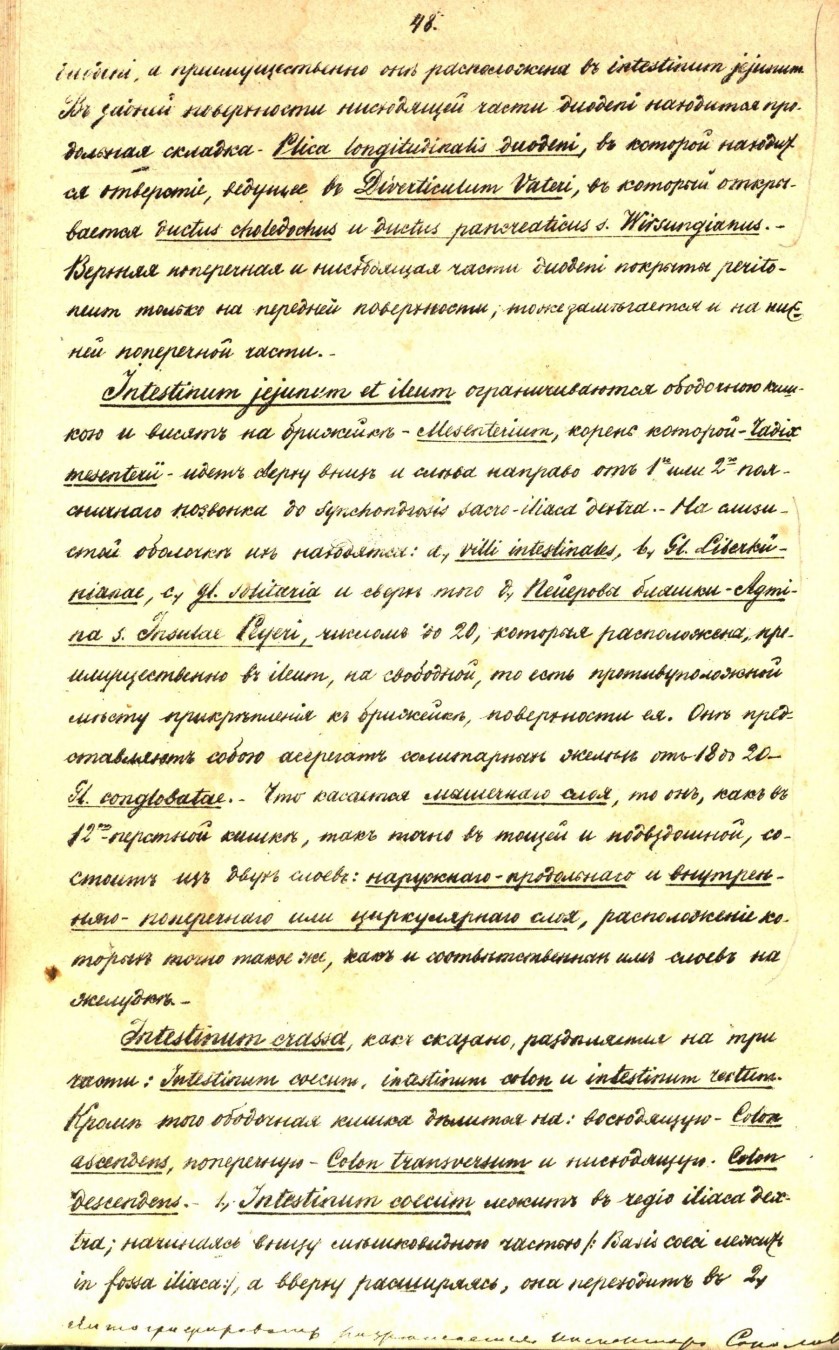 48.
duodeni, а преимущественно онѣ расположена въ intestinum jejunum.
Въ задней поверхности нисходящей части duodeni находится про-
дольная складка - Plica longitudinalis duodeni, въ которой находит
ся отверстіе, ведущее въ Diverticulum Vateri, въ который откры-
вается ductus choledochus и ductus pancreaticus s. Wirsungianus. -
Верхняя поперечная и нисходящая части duodeni покрыты perito-
neum только на передней поверхности; тоже замѣчается и на ниж
ней поперечной части. -
Intestinum jejunum et ileum ограничиваются ободочною киш-
кою и висятъ на брижейкѣ - Mesenterium, корень которой - Radix
mesenterii - идетъ сверху внизъ и слѣва направо отъ 1го или 2го поя-
сничнаго позвонка до synchondrosis sacro-iliaca dextra. - На слизи-
стой оболочкѣ ихъ находятся: a, villi intestinales, b, Gl. Liberkü-
nianae, c, gl. solitaria и сверхъ того d, Пейеровы бляшки - Agmi-
na s. Insulae Peyeri, числомъ до 20, которыя расположена, пре-
имущественно въ ileum, на свободной, то есть противуположной
мѣсту прикрѣпленія къ брижейкѣ, поверхности ея. Онѣ пред-
ставляютъ собою агрегатъ солитарныхъ железъ отъ 18 до 20 -
Gl. conglobatae. - Что касается мышечнаго слоя, то онъ, какъ въ
12ти-перстной кишкѣ, такъ точно въ тощей и подвздошной, со-
стоитъ изъ двухъ слоевъ: наружнаго - продольнаго и внутрен-
няго - поперечнаго или циркулярнаго слоя, расположеніе ко-
торыхъ точно такое же, какъ и соотвѣтственныхъ имъ слоевъ на
желудкѣ. -
Intestinum crassa, какъ сказано, раздѣляется на три
части: Intestinum coecum, intestinum colon и intestinum rectum.
Кромѣ того ободочная кишка дѣлится на: восходящую - Colon
ascendens, поперечную - Colon transversum и нисходящую - Colon
descendens. - 1, Intestinum coecum лежитъ въ regio iliaca dex-
tra; начинаясь внизу мѣшковидною частью /: Basis coeci лежитъ
in fossa iliaca :/, а вверху расширяясь, она переходитъ въ 2,
Литографировать разрѣшается Инспекторъ Соколов